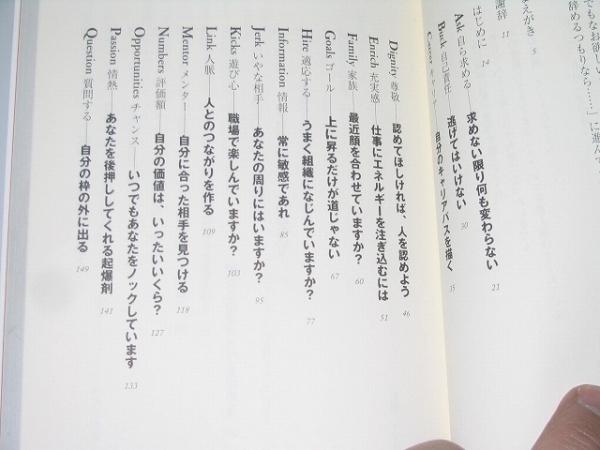 でもなお欲しい
辞めるつもりなら……」に進んで
まえがき 5
謝辞 11
はじめに 14
Ask 自ら求める――求めない限り何も変わらない 21
Buck 自己責任――逃げてはいけない 30
Career キャリア――自分のキャリアパスを描く 35
Dignity 尊敬――認めてほしければ、人を認めよう 46
Enrich 充実感――仕事にエネルギーを注ぎ込むには 51
Family 家族――最近顔を合わせていますか? 60
Goals ゴール――上に昇るだけが道じゃない 67
Hire 適応する――うまく組織になじんでいますか? 77
Information 情報――常に敏感であれ 85
Jerk いやな相手――あなたの周りにはいますか? 95
Kicks 遊び心――職場で楽しんでいますか? 103
Link 人脈――人とのつながりを作る 109
Mentor メンター――自分に合った相手を見つける 118
Numbers 評価額――自分の価値は、いったいいくら? 127
Opportunities チャンス――いつでもあなたをノックしています 133
Passion 情熱――あなたを後押ししてくれる起爆剤 141
Question 質問する――自分の枠の外に出る 149